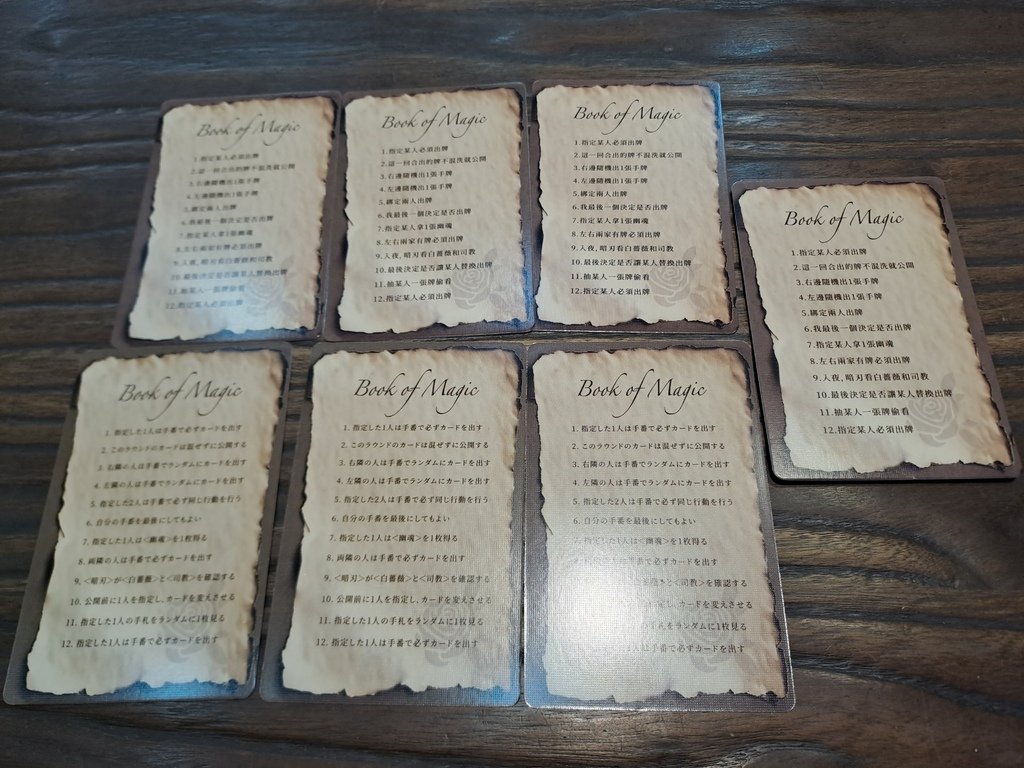 Book of Magic
1.指定某人必須出牌
2.這一回合出的牌不混洗就公開
3.右邊隨機出1張手牌
4.左邊隨機出1張手牌
5.綁定兩人出牌
6.我最後一個決定是否出牌
7.指定某人拿1張幽魂
8.左右兩家有牌必須出牌
9.入夜,暗刃看白薔薇和司教
10.最後決定是否讓某人替換出牌
11.抽某人一張牌偷看
12.指定某人必須出牌
Book of Magic
1.指定某人必須出牌
2.這一回合出的牌不混洗就公開
3.右邊隨機出1張手牌
4.左邊隨機出1張手牌
5.綁定兩人出牌
6.我最後一個決定是否出牌
7.指定某人拿1張幽魂
8.左右兩家有牌必須出牌
9.入夜,暗刃看白薔薇和司教
10.最後決定是否讓某人替換出牌
11.抽某人一張牌偷看
12.指定某人必須出牌
Book of Magic
1.指定某人必須出牌
2.這一回合出的牌不混洗就公開
3.右邊隨機出1張手牌
4.左邊隨機出1張手牌
5.綁定兩人出牌
6.我最後一個決定是否出牌
7.指定某人拿1張幽魂
8.左右兩家有牌必須出牌
9.入夜,暗刃看白薔薇和司教
10.最後決定是否讓某人替換出牌
11.抽某人一張牌偷看
12.指定某人必須出牌
Book of Magic
1.指定某人必須出牌
2.這一回合出的牌不混洗就公開
3.右邊隨機出1張手牌
4.左邊隨機出1張手牌
5.綁定兩人出牌
6.我最後一個決定是否出牌
7.指定某人拿1張幽魂
8.左右兩家有牌必須出牌
9.入夜,暗刃看白薔薇和司教
10.最後決定是否讓某人替換出牌
11.抽某人一張牌偷看
12.指定某人必須出牌
Book of Magic
1. 指定した1人は手番で必ずカードを出す
2. このラウンドのカードは混ぜずに公開する
3. 右隣の人は手番でランダムにカードを出す
4. 左隣の人は手番でランダムにカードを出す
5. 指定した2人は手番で必ず同じ行動を行う
6. 自分の手番を最後にしてもよい
7. 指定した1人は<幽魂>を1枚得る
8. 両隣の人は手番で必ずカードを出す
9. <暗刃>が<白薔薇>と<司教>を確認する
10. 公開前に1人を指定し、カードを変えさせる
11. 指定した1人の手札をランダムに1枚見る
12. 指定した1人は手番で必ずカードを出す
Book of Magic
1. 指定した1人は手番で必ずカードを出す
2. このラウンドのカードは混ぜずに公開する
3. 右隣の人は手番でランダムにカードを出す
4. 左隣の人は手番でランダムにカードを出す
5. 指定した2人は手番で必ず同じ行動を行う
6. 自分の手番を最後にしてもよい
7. 指定した1人は<幽魂>を1枚得る
8. 両隣の人は手番で必ずカードを出す
9. <暗刃>が<白薔薇>と<司教>を確認する
10. 公開前に1人を指定し、カードを変えさせる
11. 指定した1人の手札をランダムに1枚見る
12. 指定した1人は手番で必ずカードを出す
Book of Magic
1. 指定した1人は手番で必ずカードを出す
2. このラウンドのカードは混ぜずに公開する
3. 右隣の人は手番でランダムにカードを出す
4. 左隣の人は手番でランダムにカードを出す
5. 指定した2人は手番で必ず同じ行動を行う
6. 自分の手番を最後にしてもよい
7. 指定した1人は<幽魂>を1枚得る
の人は手番で必ずカードを出す
と<司教>を確認する
し、カードを変えさせる
の手札をランダムに1枚見る
は手番で必ずカードを出す